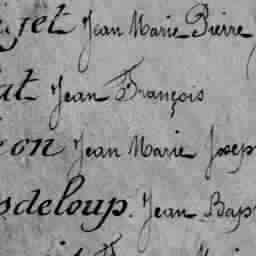 jet Jean Marie Pierre
at Jean François
on Jean Marie Josep
sdeloup. Jean Bap